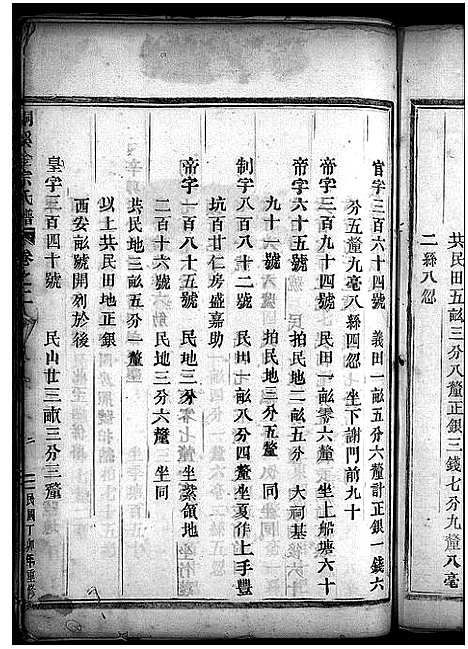 共民田五畝三分八釐正銀三錢七分九釐八毫
二絲八忽
官字三百六十四號 義田一畝五分六釐計正銀一錢六
分五釐九毫八絲四忽 坐下謝門前九十
帝字三百九十四號 民田一畝零六釐 坐上船塘六十
帝字六十五號 拍民地二畝五分 大祠基後六十
九十六號 拍民地三分五釐 同
制字八百八十二號 民田七畝八分四釐坐夏作上手豐
坑百廿仁房盛嘉助
帝字一百八十五號 民地三分零七釐 坐紫領地
二百十六號 民地三分六釐 坐同
共民地三畝五分一釐
以上共民田地正銀
西安畝號開列於後
皇字三百四十號 民山廿三畝三分三釐
氏譜
卷之二
民國丁卯年重修